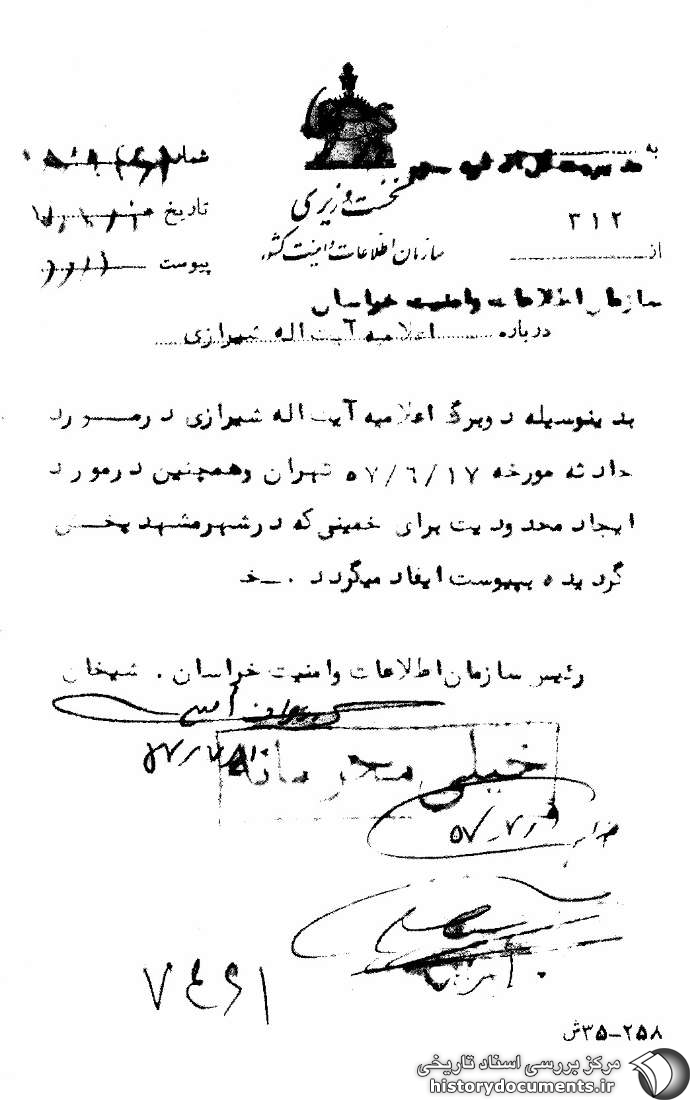 به
مدیریت کل اداره سوم
شماره
نخست وزیری
۳۱۲
تاریخ
سازمان اطلاعات و امنیت کشور
از
پیوست
سازمان اطلاعات وامنیت خراسان
درباره اعلامیه آیت اله شیرازی
بدینوسیله دوبرگ اعلامیه آیت اله شیرازی درمورد
حادثه مورخه ۵۷/۶/۱۷ تهران وهمچنین درمورد
ایجاد محدودیت برای خمینی که درشهرمشهد پخش
گردیده بپیوست ایفاد میگردد . خ
رئیس سازمان اطلاعات وامنیت خراسان . شیخان
خیلی محرمانه
۷۴۶۱
۳۵-۲۵۸ش
مرکز بررسی اسناد تاریخی
historydocuments.ir